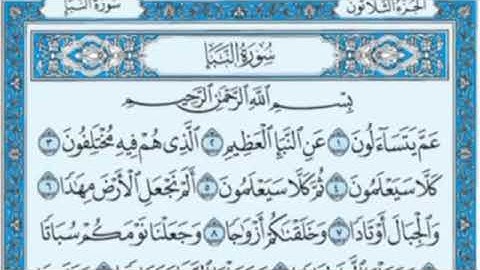 الجزء الثلاثون سورة النبأ
سُورَةُ النَّبَإِ
بِسْمِ اللَّهِ الرَّحْمَٰنِ الرَّحِيمِ
عَمَّ يَتَسَاءَلُونَ ١ عَنِ النَّبَإِ الْعَظِيمِ ٢ الَّذِي هُمْ فِيهِ مُخْتَلِفُونَ ٣
كَلَّا سَيَعْلَمُونَ ٤ ثُمَّ كَلَّا سَيَعْلَمُونَ ٥ أَلَمْ نَجْعَلِ الْأَرْضَ مِهَٰدًا ٦
وَالْجِبَالَ أَوْتَادًا ٧ وَخَلَقْنَٰكُمْ أَزْوَٰجًا ٨ وَجَعَلْنَا نَوْمَكُمْ سُبَاتًا